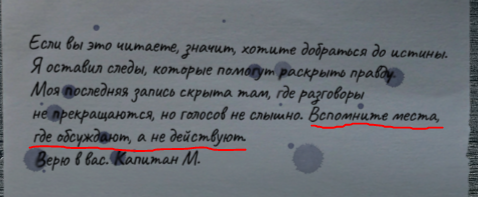 Если вы это читаете, значит, хотите добраться до истины.
Я оставил следы, которые помогут раскрыть правду.
Моя последняя запись скрыта там, где разговоры
не прекращаются, но голосов не слышно. Вспомните места,
где обсуждают, а не действуют
Верю в вас. Капитан М.